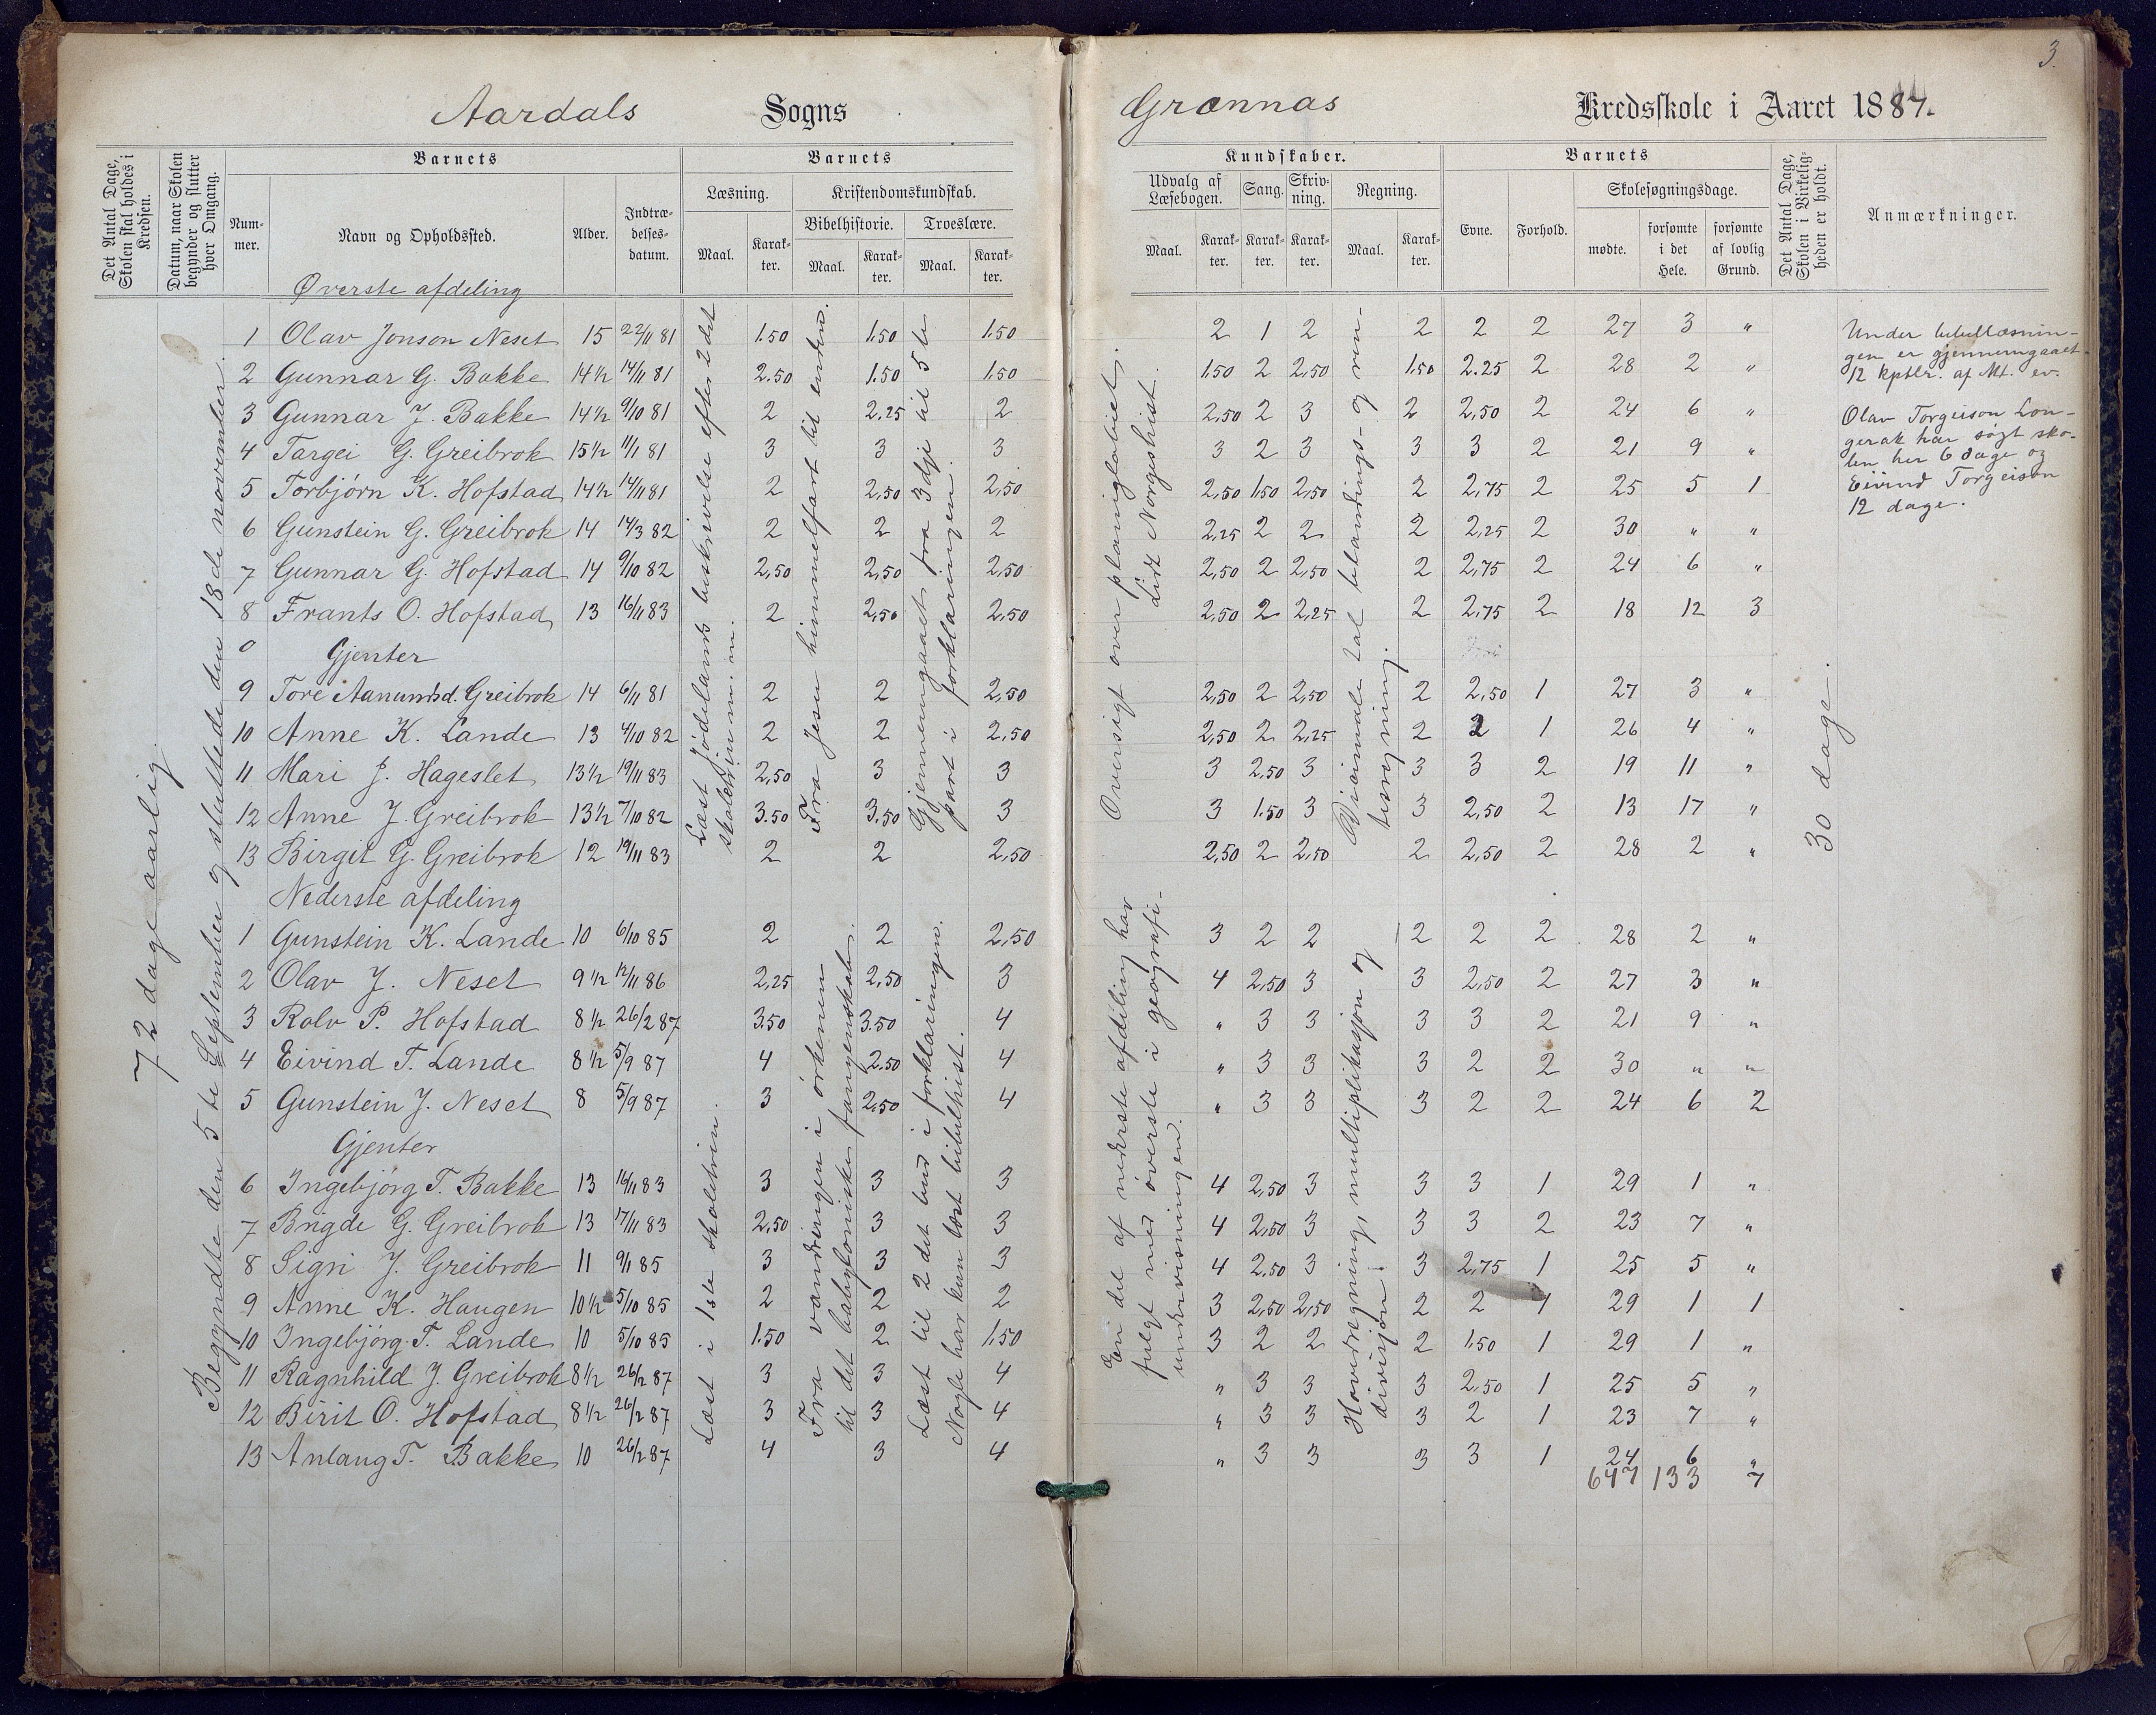 3.
Aardals Sogns
Grønnæs Kredsskole i Aaret 1887.
Det Antal Dage, Skolen skal holdes i Kredsen.
Datum, naar Skolen begynder og slutter hver Omgang.
Barnets
Num-mer.
Navn og Opholdssted.
Alder.
Indtræ-delses-datum.
Barnets
Læsning.
Maal. Karak-ter.
Kristendomskundskab.
Bibelhistorie. Troeslære.
Maal. Karak-ter. Maal. Karak-ter.
Kundskaber.
Udvalg af Læsebogen. Sang. Skriv-ning. Regning.
Maal. Karak-ter. Karak-ter. Karak-ter. Maal. Karak-ter.
Barnets
Evne. Forhold. Skolesøgningsdage.
mødte. forsømte i det Hele. forsømte af lovlig Grund.
Det Antal Dage, Skolen i Virkelig-heden er holdt.
Anmærkninger.
72 dage aarlig.
Begyndte den 5te September og sluttede den 18de november.
Øverste afdeling
1 Olav Jonson Neset 15 22/11 81 1.50 1.50 1.50 2 1 2 2 2 2 27 3 "
2 Gunnar G. Bakke 14½ 14/11 81 2.50 1.50 1.50 1.50 2 2,50 1.50 2.25 2 28 2 "
3 Gunnar J. Bakke 14½ 9/10 81 2 2.25 2 2,50 2 3 2 2,50 2 24 6 "
4 Targei G. Greibrok 15½ 11/1 81 3 3 3 3 2 3 3 3 2 21 9 "
5 Torbjørn K. Hofstad 14½ 14/11 81 2 2,50 2,50 2,50 1.50 2,50 2 2,75 2 25 5 1
6 Gunstein G. Greibrok 14 14/3 82 2 2 2 2,25 2 2 2 2,25 2 30 " "
7 Gunnar G. Hofstad 14 9/10 82 2,50 2,50 2,50 2,50 2 2,50 2 2,75 2 24 6 "
8 Frants O. Hofstad 13 16/11 83 2 2,50 2,50 2,50 2 2,25 2 2,75 2 18 12 3
Gjenter
9 Tore Aanundsd. Greibrok 14 6/11 81 2 2 2,50 2,50 2 2,50 2 2,50 1 27 3 "
10 Anne K. Lande 13 4/10 82 2 2 2,50 2,50 2 2,25 2 2 1 26 4 "
11 Mari J. Hageslet 13½ 19/11 83 2,50 3 3 3 2,50 3 3 3 2 19 11 "
12 Anne J. Greibrok 13½ 7/10 82 3.50 3.50 3 3 1.50 3 3 2,50 2 13 17 "
13 Birgit G. Greibrok 12 19/11 83 2 2 2,50 2,50 2 2,50 2 2,50 2 28 2 "
Læst Jødelands beskrivelse efter 2det skoletrin m. m.
Fra Jesu himmelfart til enden.
Gjennemgaaet fra 3dje til 5te part i forklaringen.
Oversigt over planingtabiet. lidt Norgeshist.
Desimale tal blandings- og ren-tesregning.
30 dage.
Under bibellæsnin-
gen er gjennemgaaet
12 kptlr. af Mt. ev.
Olav Torgeison Lon-
gerak har søgt sko-
len her 6 dage og
Eivind Torgeison
12 dage.
Nederste afdeling
1 Gunstein K. Lande 10 6/10 85 2 2 2,50 3 2 2 2 2 2 28 2 "
2 Olav J. Neset 9½ 12/11 86 2,25 2,50 3 4 2,50 3 3 2,50 2 27 3 "
3 Rolv P. Hofstad 8½ 26/2 87 3.50 3.50 4 " 3 3 3 3 2 21 9 "
4 Eivind T. Lande 8½ 5/9 87 4 2.50 4 " 3 3 3 2 2 30 " "
5 Gunstein J. Neset 8 5/9 87 3 2,50 4 " 3 3 3 2 2 24 6 2
Gjenter
6 Ingebjørg T. Bakke 13 16/11 83 3 3 3 4 2,50 3 3 3 1 29 1 "
7 Brigde G. Greibrok 13 17/11 83 2,50 3 3 4 2,50 3 3 3 2 23 7 "
8 Signi J. Greibrok 11 9/1 85 3 3 3 4 2,50 3 3 2,75 1 25 5 "
9 Anne K. Haugen 10½ 5/10 85 2 2 2 3 2,50 2,50 2 2 1 29 1 1
10 Ingebjørg T. Lande 10 5/10 85 1.50 2 1.50 3 2 2 2 1.50 1 29 1 "
11 Ragnhild J. Greibrok 8½ 26/2 87 3 3 4 " 3 3 3 2,50 1 25 5 "
12 Birit O. Hofstad 8½ 26/2 87 3 3 4 " 3 3 3 2 1 23 7 "
13 Anlaug T. Bakke 10 26/2 87 4 3 4 " 3 3 3 3 1 24 6 "
647 133 7
Læst i 1ste skoletrin.
Fra vandringen i ørkenen til det babyloniske fangenskab.
Læst til 2det bud i forklaringen. Nogle har kun læst bibelhist.
En del af nederste afdeling har fulgt med øverste i geografi-undervisningen.
Hovedregning, multiplikasjon og divisjon.